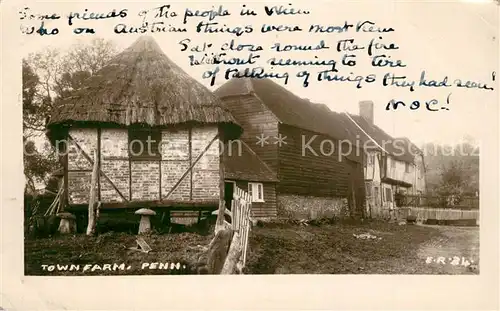 Some of the people in Wien
Who on Austrian things were most Keen
Sat close round the fire
Without seeming to tire
of talking of things they had seen!
N o C!
karten-kosmos.de
TOWN FARM. PENN.
E.R. 84.